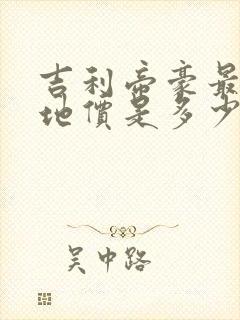 吉利帝豪最
地價是多少
吴中路